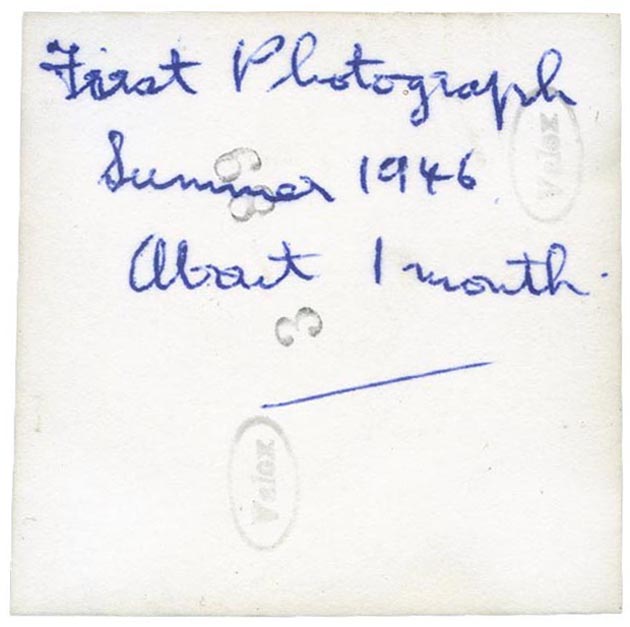 First Photograph
Velox
Summer 1946
About 1 month.
3
Velox